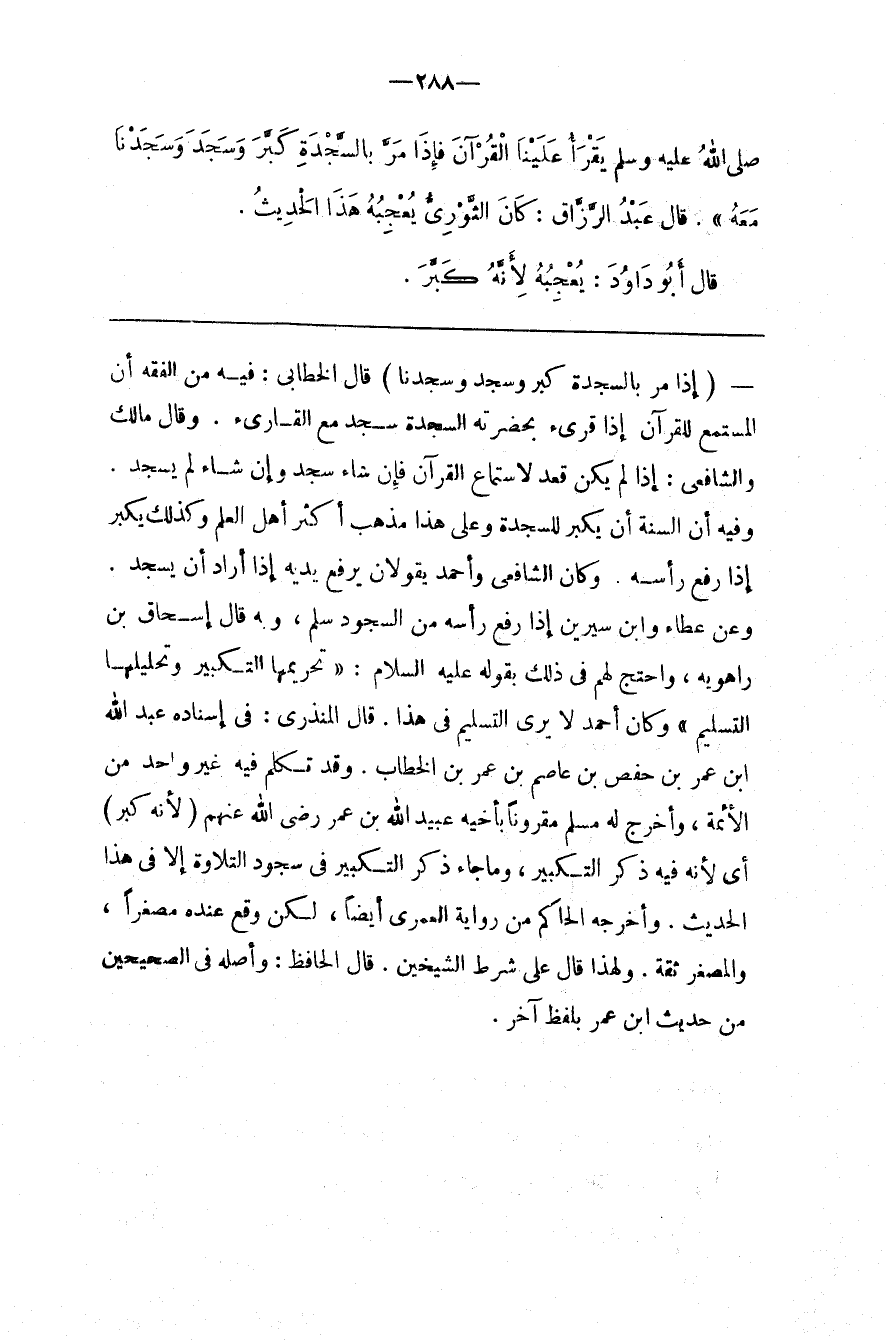 —٢٨٨—
صلى اللهُ عليه وسلم يَقْرَأُ عَلَيْنَا الْقُرْآنَ فَإِذَا مَرَّ بالسَّجْدَةِ كَبَّرَ وَسَجَدَ وَسَجَدْنَا
مَعَهُ » . قال عَبْدُ الرَّزَّاق : كَانَ الثَّوْرِىُّ يُعْجِبُهُ هَذَا الْحَدِيثُ .
قال أَبُو دَاوُدَ : يُعْجِبُهُ لِأَنَّهُ كَبَّرَ .
— ( إذا مر بالسجدة كبر وسجد وسجدنا ) قال الخطابى : فيه من الفقه أن
المستمع للقرآن إذا قرىء بحضرته السجدة سجد مع القارىء . وقال مالك
والشافعى : إذا لم يكن قعد لاستماع القرآن فإن شاء سجد وإن شاء لم يسجد .
وفيه أن السنة أن يكبر للسجدة وعلى هذا مذهب أكثر أهل العلم وكذلك يكبر
إذا رفع رأسه . وكان الشافعى وأحمد يقولان يرفع يديه إذا أراد أن يسجد .
وعن عطاء وابن سيرين إذا رفع رأسه من السجود سلم ، وبه قال إسحاق بن
راهويه ، واحتج لهم فى ذلك بقوله عليه السلام : « تحريمها التكبير وتحليلها
التسليم » وكان أحمد لا يرى التسليم فى هذا . قال المنذرى : فى إسناده عبد الله
ابن عمر بن حفص بن عاصم بن عمر بن الخطاب . وقد تكلم فيه غير واحد من
الأئمة ، وأخرج له مسلم مقروناً بأخيه عبيد الله بن عمر رضى الله عنهم ( لأنه كبر )
أى لأنه فيه ذكر التكبير ، وماجاء ذكر التكبير فى سجود التلاوة إلا فى هذا
الحديث . وأخرجه الحاكم من رواية العمرى أيضاً ، لكن وقع عنده مصغراً ،
والمصغر ثقة . ولهذا قال على شرط الشيخين . قال الحافظ : وأصله فى الصحيحين
من حديث ابن عمر بلفظ آخر .